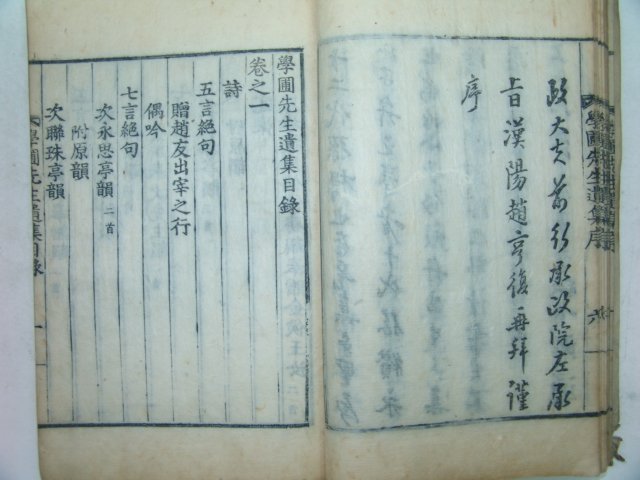 政大夫前行承政院左承
旨漢陽趙亨復再拜謹
序
學圃先生遺集序
學圃先生遺集目錄
卷之一
詩
五言絕句
贈趙友出宰之行
偶吟
七言絕句
次永思亭韻 二首
附原韻
次聯珠亭韻
學圃先生遺集目錄
一